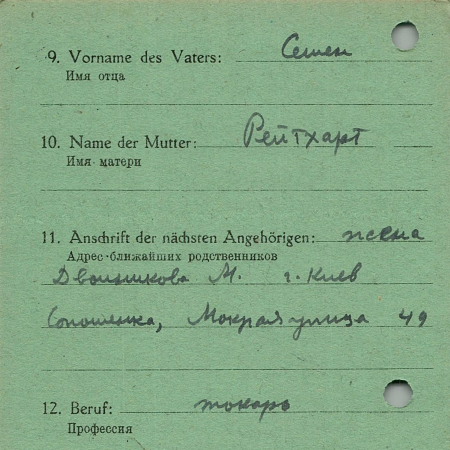 9. Vorname des Vaters: Семен
Имя отца
10. Name der Mutter: Рейтхарт
Имя матери
11. Anschrift der nächsten Angehörigen: жена
Адрес ближайших родственников
М. г. Киев
Мокрая улица 49
12. Beruf: токарь
Профессия